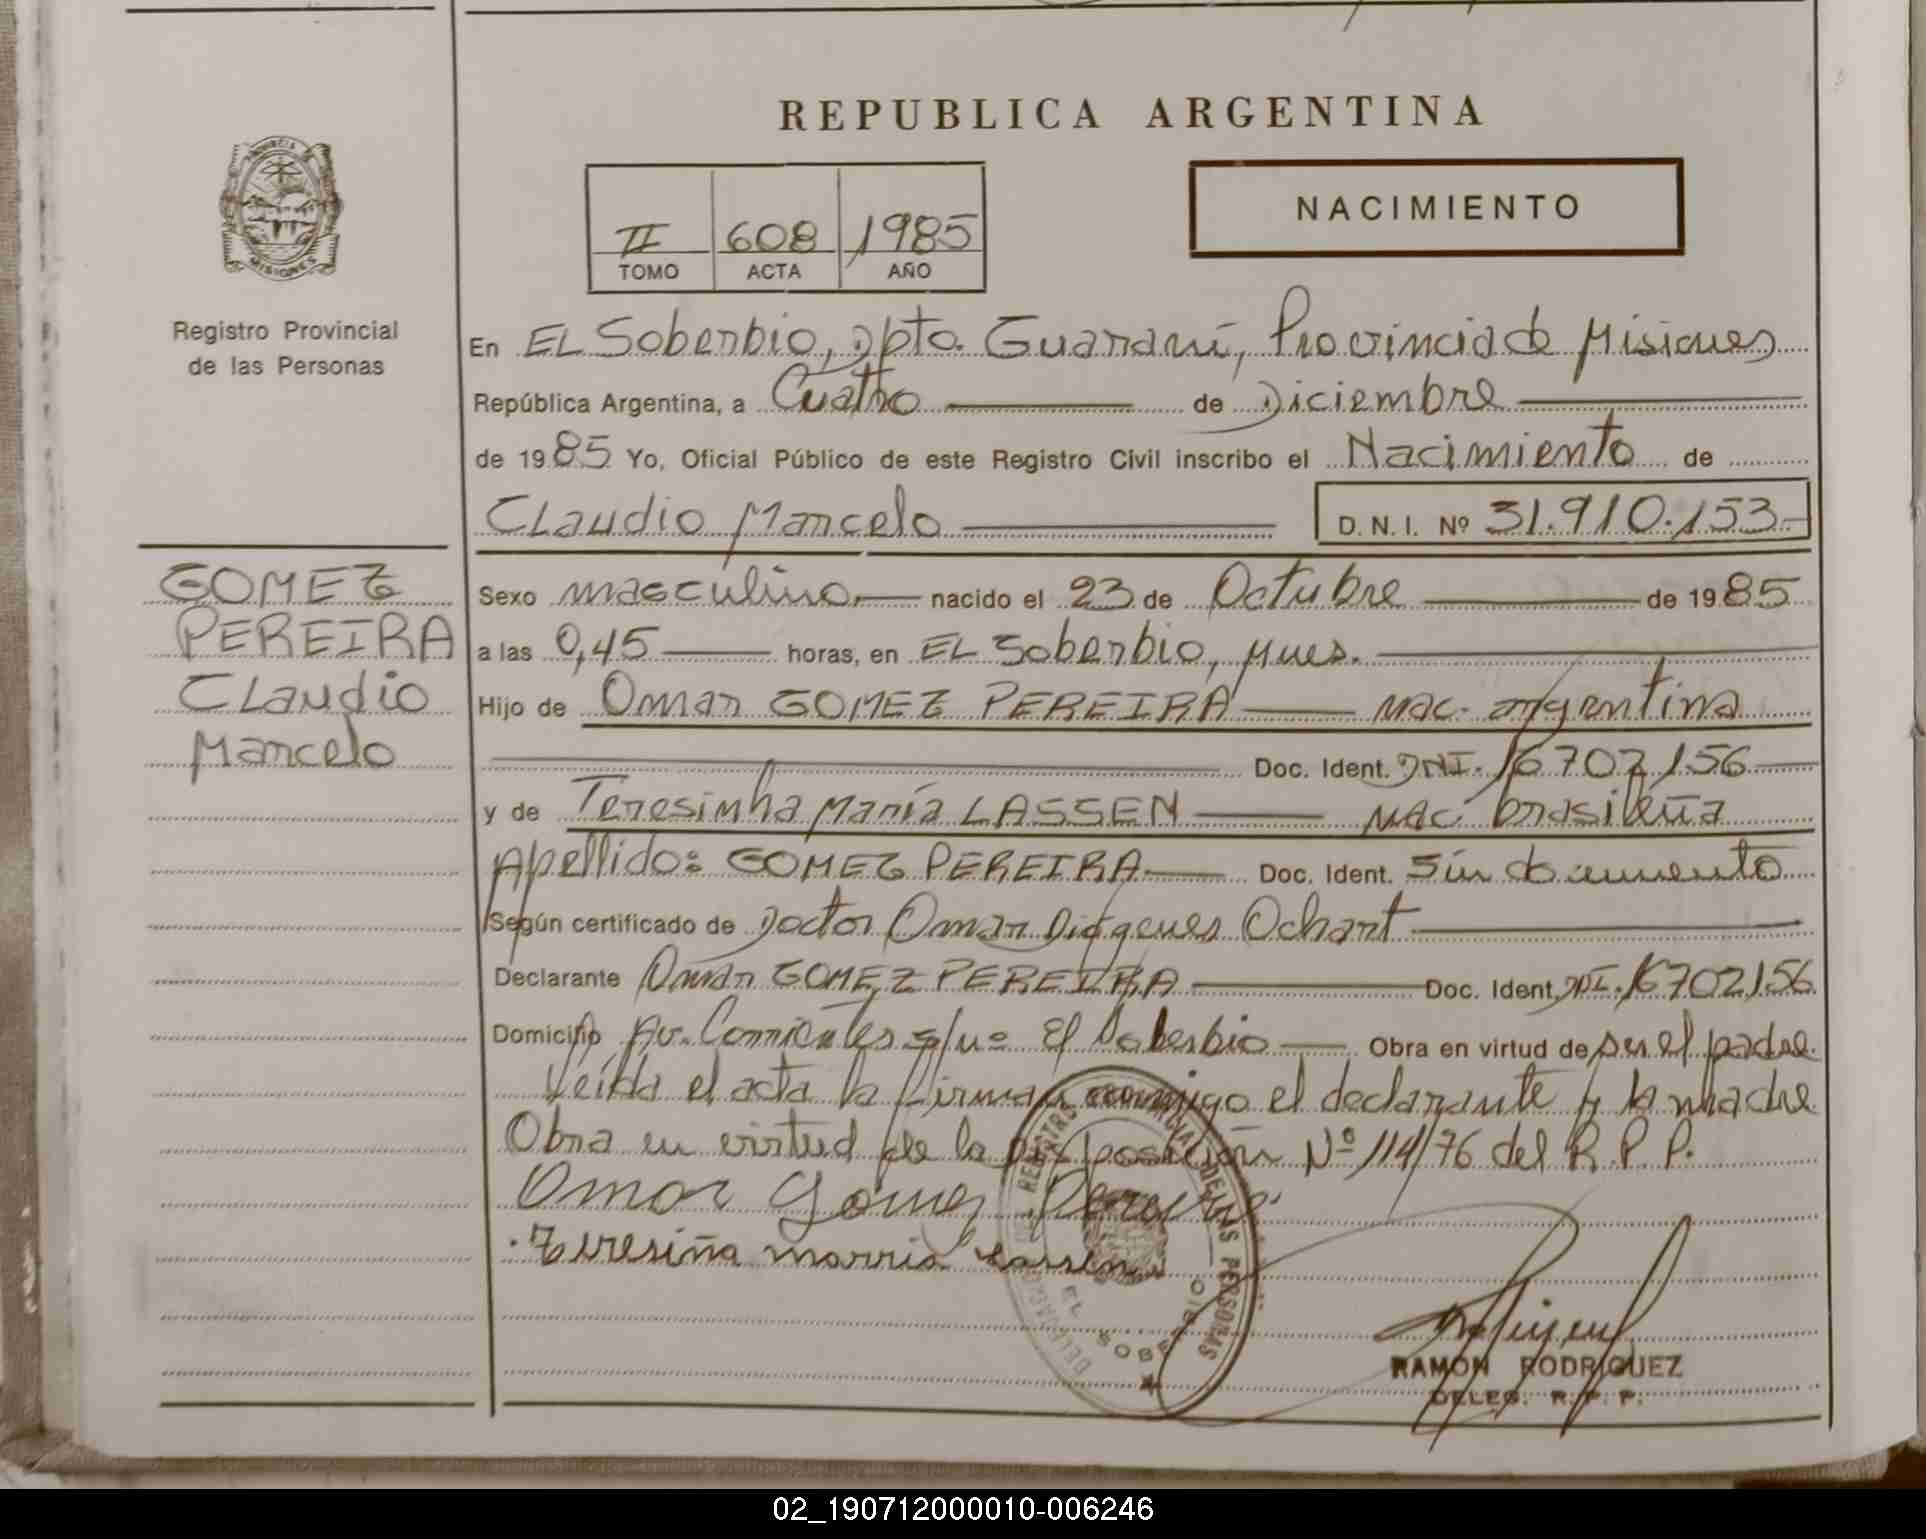 REPUBLICA ARGENTINA
PROVINCIA DE
MISIONES
Registro Provincial
de las Personas
II 608 1985
TOMO ACTA AÑO
NACIMIENTO
En EL Soberbio, Dpto. Guaraní, Provincia de Misiones
República Argentina, a Cuatro de Diciembre
de 1985 Yo, Oficial Público de este Registro Civil inscribo el Nacimiento de
Claudio Marcelo D.N.I. Nº 31.910.153-
GOMEZ
PEREIRA
Claudio
Marcelo
Sexo masculino.- nacido el 23 de Octubre de 1985
a las 0,45 horas, en EL Soberbio, Mnes.
Hijo de Omar GOMEZ PEREIRA nac. argentina
Doc. Ident. DNI. 16702156
y de Teresinha María LASSEN nac. brasileña
Apellido: GOMEZ PEREIRA Doc. Ident. Sin documento
Según certificado de Doctor Omar Diógenes Ochart
Declarante Omar GOMEZ PEREIRA Doc. Ident. DNI. 16702156
Domicilio Av. Corrientes s/nº El Soberbio Obra en virtud de ser el padre.
Leída el acta la firman conmigo el declarante y la madre
Obra en virtud de la Disposición Nº 114/76 del R.P.P.
Omar Gómez Pereira
Teresiña marria Lassen
REGISTRO PROVINCIAL DE LAS PERSONAS
DELEGACION
EL SOBERBIO
RAMON RODRIGUEZ
DELEG. R. P. P.
02_190712000010-006246